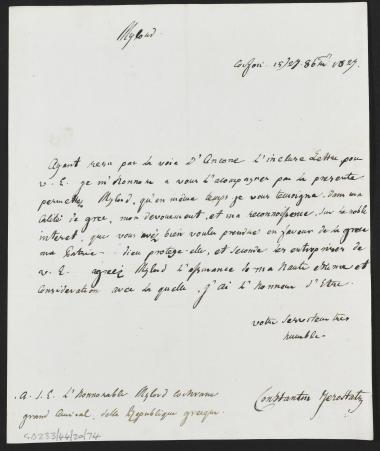 Mylord
Corfou. 15/27. 8bre 1827.
Ayant reçu par la voie d'Ancone l'incluse Lettre pour
v. E. je m'honnore a vous l'acompagner par la presente
permettez Mylord, qu'en même temps je vous temoigne, dans ma
calité de grec, mon devouement, et ma reconnoissence, sur le noble
interet, que vous avez bien voulu prendre en faveur de la grece
ma Patrie - dieu protege-elle, et seconde les entreprises de
v. E. agreéz Mylord l'assurance de ma haute estime et
Consideration avec la quelle, j'ai l'honneur d'Etre.
votre serviteur tres
humble.
A. S. E. l'honnorable Mylord Cochrane
grand Amiral, della Republique greque.
Constantin
GD233/44/20/74